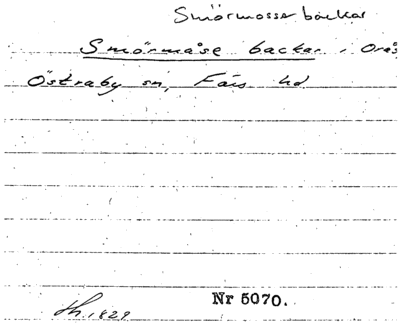 Smörmosse backar
Smörmåse backar, Orås
Östraby sn, Färs hd
Nr 5070.
1829